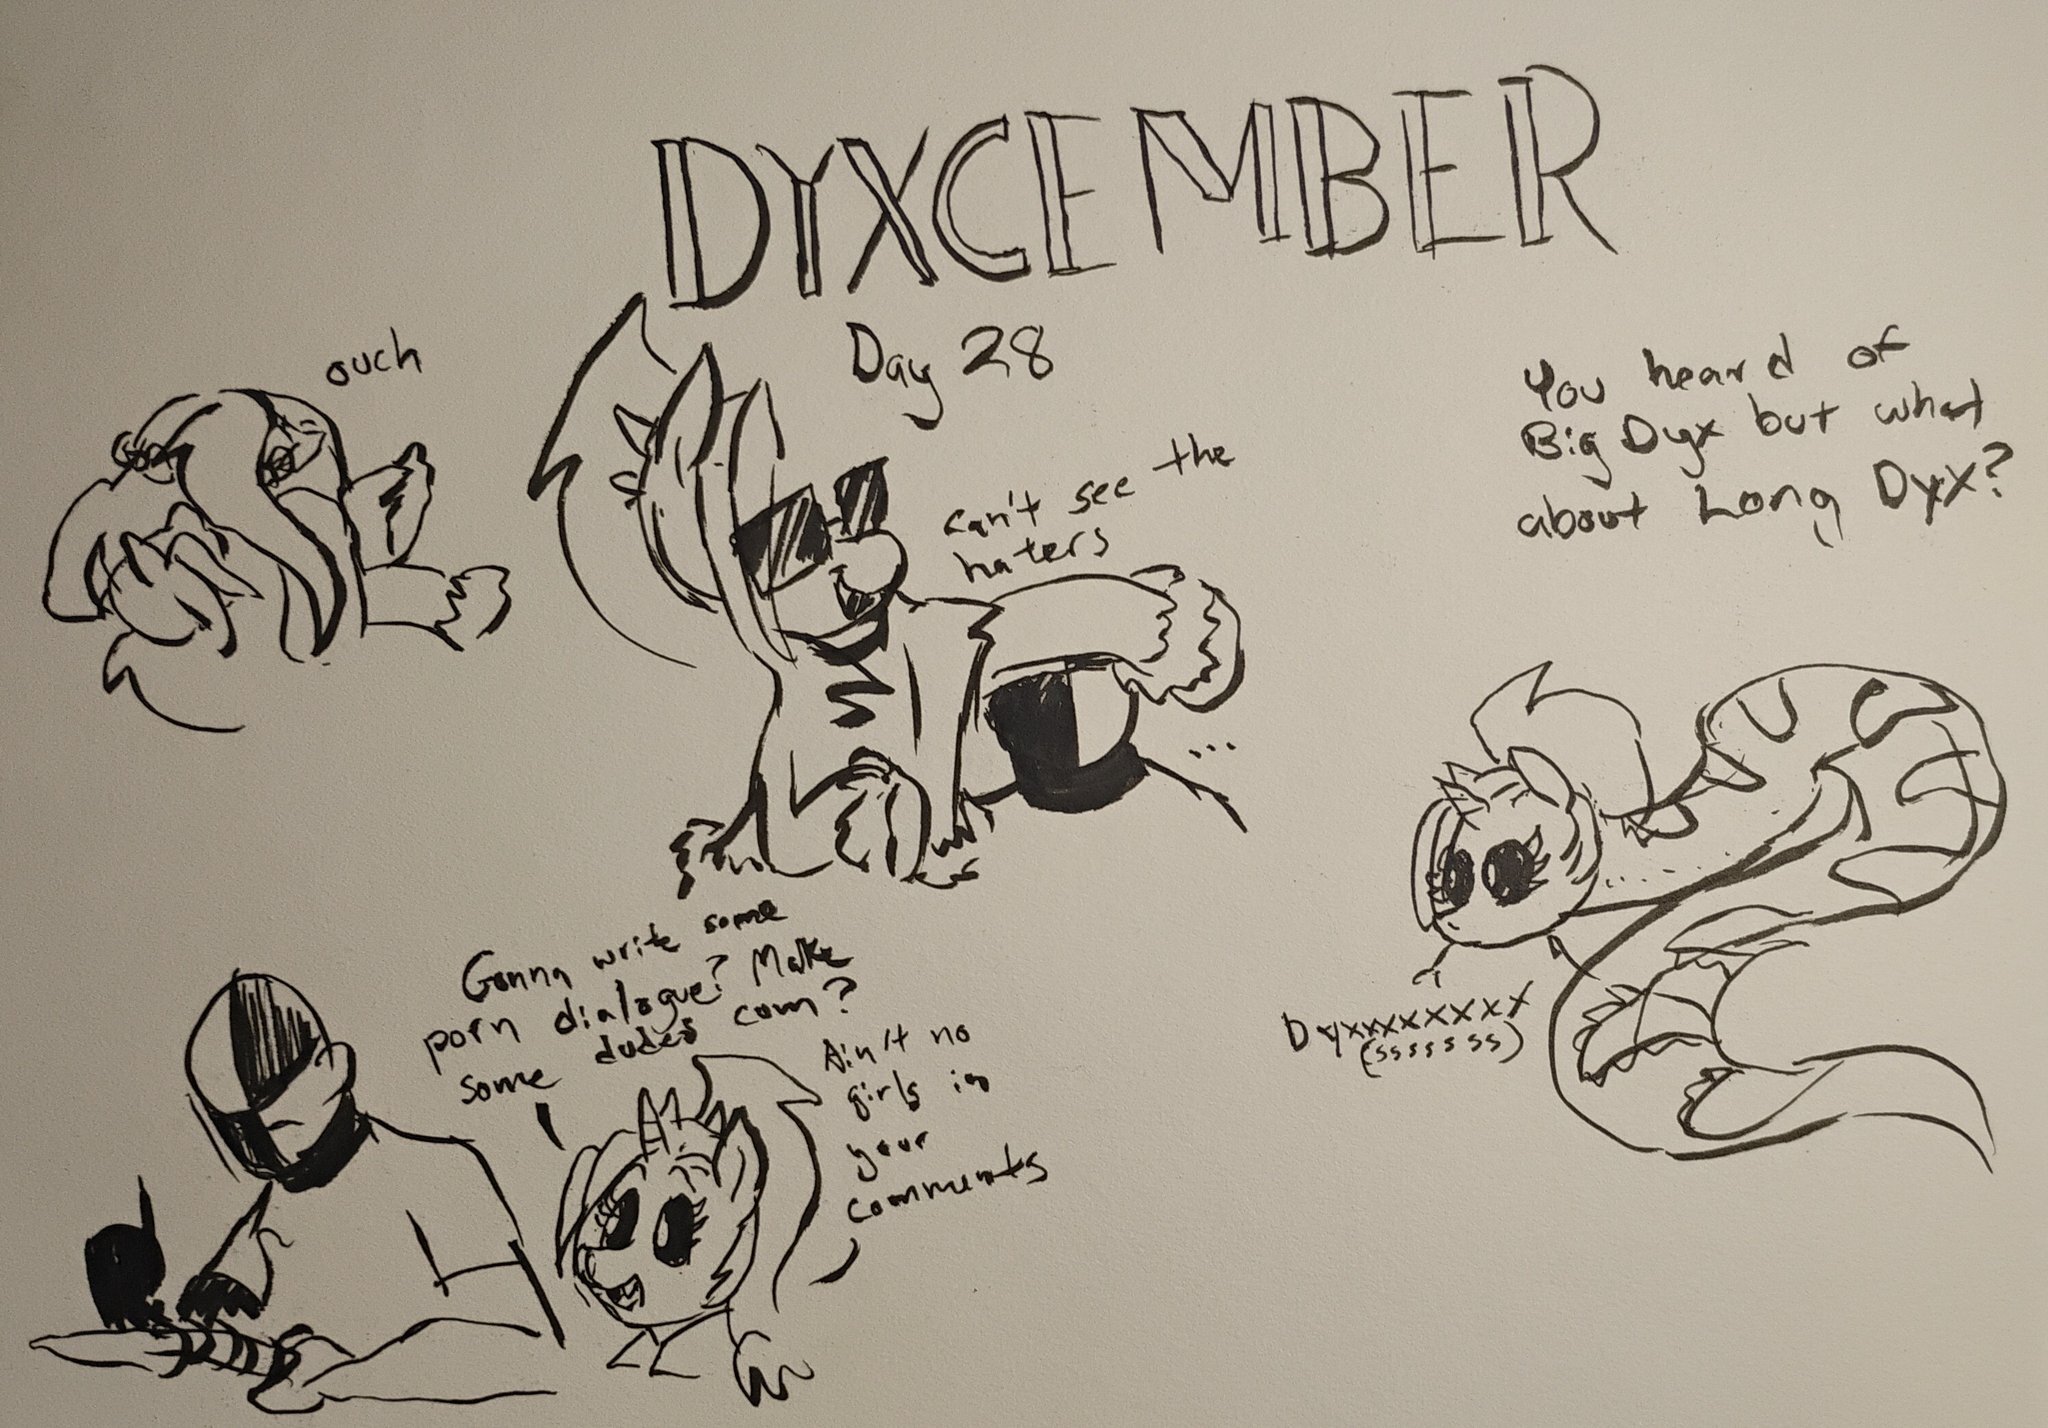 DYXCEMBER
Day 28
ouch
can't see the
haters
...
You heard of
Big Dyx but what
about Long Dyx?
Dyxxxxxxxx
(sssssss)
Gonna write some
porn dialogue? Make
some dudes com?
Ain't no
girls in
your
comments